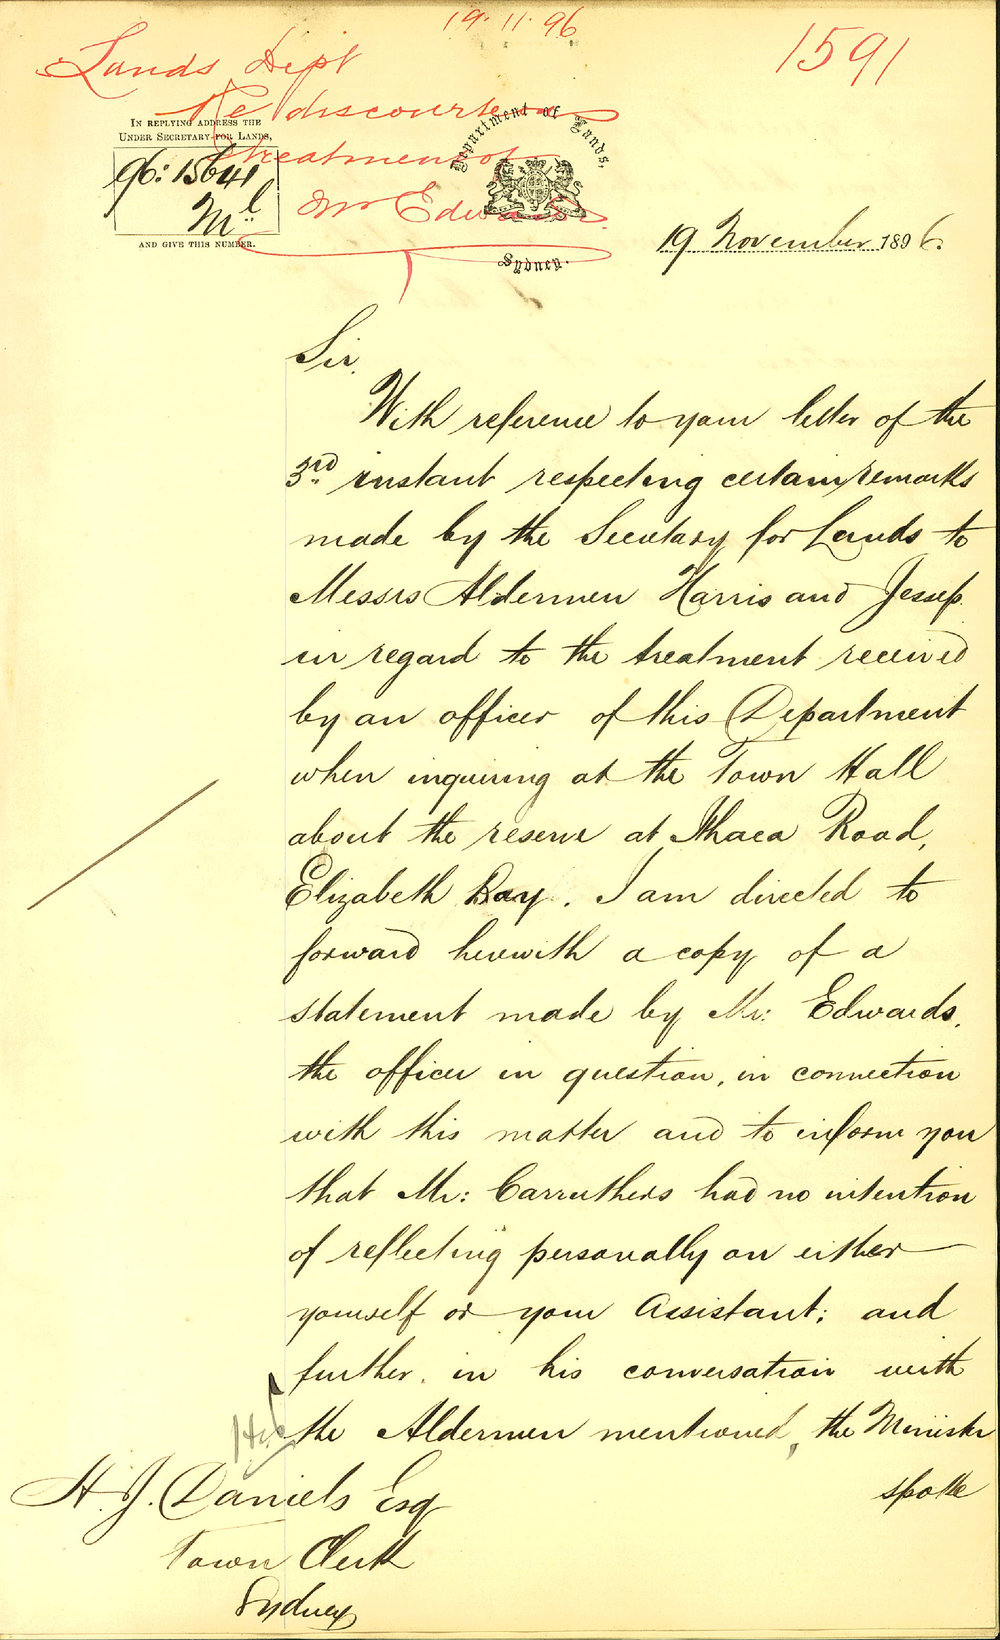 19.11.96
1591
Lands Dept
Re discourteous
treatment of
Mr Edwards.
IN REPLYING ADDRESS THE
UNDER SECRETARY FOR LANDS,
96:15641
Ml
AND GIVE THIS NUMBER.
Department of Lands,
Sydney.
19 November 1896.
Sir,
With reference to your letter of the
3rd instant respecting certain remarks
made by the Secretary for Lands to
Messrs Aldermen Harris and Jessep
in regard to the treatment received
by an officer of this Department
when inquiring at the Town Hall
about the reserve at Ithaca Road,
Elizabeth Bay. I am directed to
forward herewith a copy of a
statement made by Mr: Edwards,
the officer in question, in connection
with this matter and to inform you
that Mr: Carruthers had no intention
of reflecting personally on either
yourself or your Assistant; and
further, in his conversation with
the Aldermen mentioned, the Minister
spoke
H. J. Daniels Esq
Town Clerk
Sydney